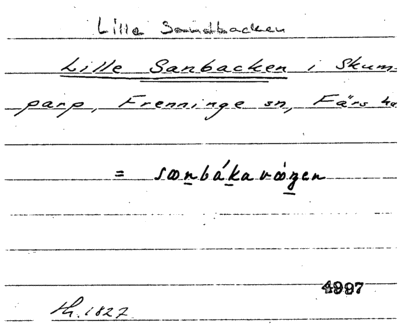 Lille Sandbacken
Lille Sanbacken i Skum-
parp, Frenninge sn, Färs
= sωnbákavǿgen
4997
th. 1827